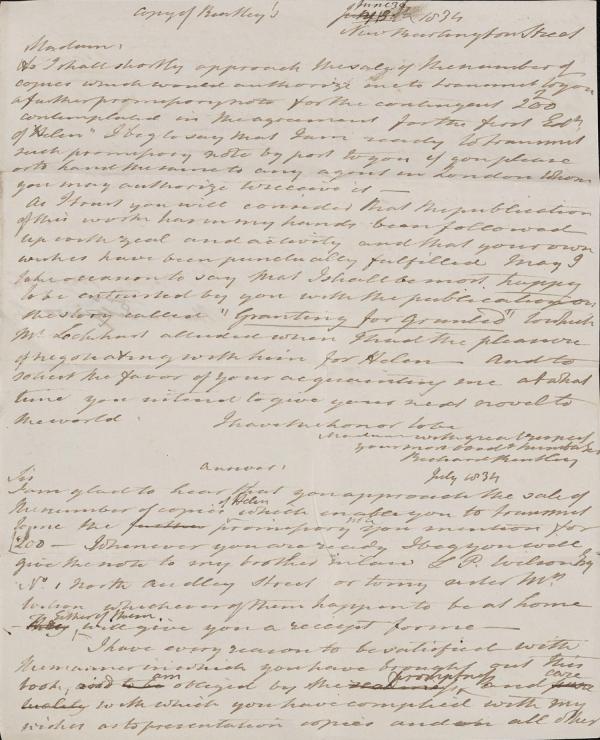 Copy of Bentley's
June 30th 1834
New Burlington Street
Madam:
As I shall shortly approach the sale of the number of
copies which would authorize me to transmit to you
a further promisory note for the contingent 200
contemplated in the agreement for the first Edn
of Helen" I beg to say that I am ready to transmit
such promisory note by post to you if you please
or to hand the same to any agent in London whom
you may authorize to receive it —
As I trust you will consider that the publication
of this work has in my hands been followed
up with zeal and activity and that your own
wishes have been punctually fulfilled May I
take occasion to say that I shall be most happy
to be entrusted by you with the publication of
the story called "Granting for Granted" to which
Mr Lockhart alluded when I had the pleasure
of negotiating with him for Helen — And to
solicit the favor of your acquainting me at what
time you intend to give your next novel to
the world I have the honor to be
Madam with great respect
your most obedt humble Ser
Richard Bentley
Answer:
July 1834
Sir
I am glad to hear that you approach the sale of
the number of copies of Helen which enable you to transmit
to me the further promisory note you mention for
£200 — Whenever you are ready I beg you will
give the note to my brother in law L P. Wilson Esqr
No. 1 North Audley Street or to my sister Mrs
Wilson whichever of them happen to be at home
— They either of them will give you a receipt for me —
I have every reason to be satisfied with
the manner in which you have brought out this
book, and to be am obliged by the promptness and care
with which you have complied with my
wishes as to presentation copies and on all other